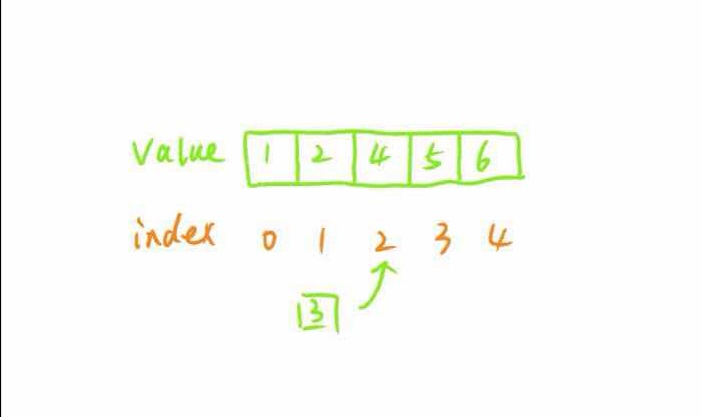 Value 1 2 4 5 6
index 0 1 2 3 4
3